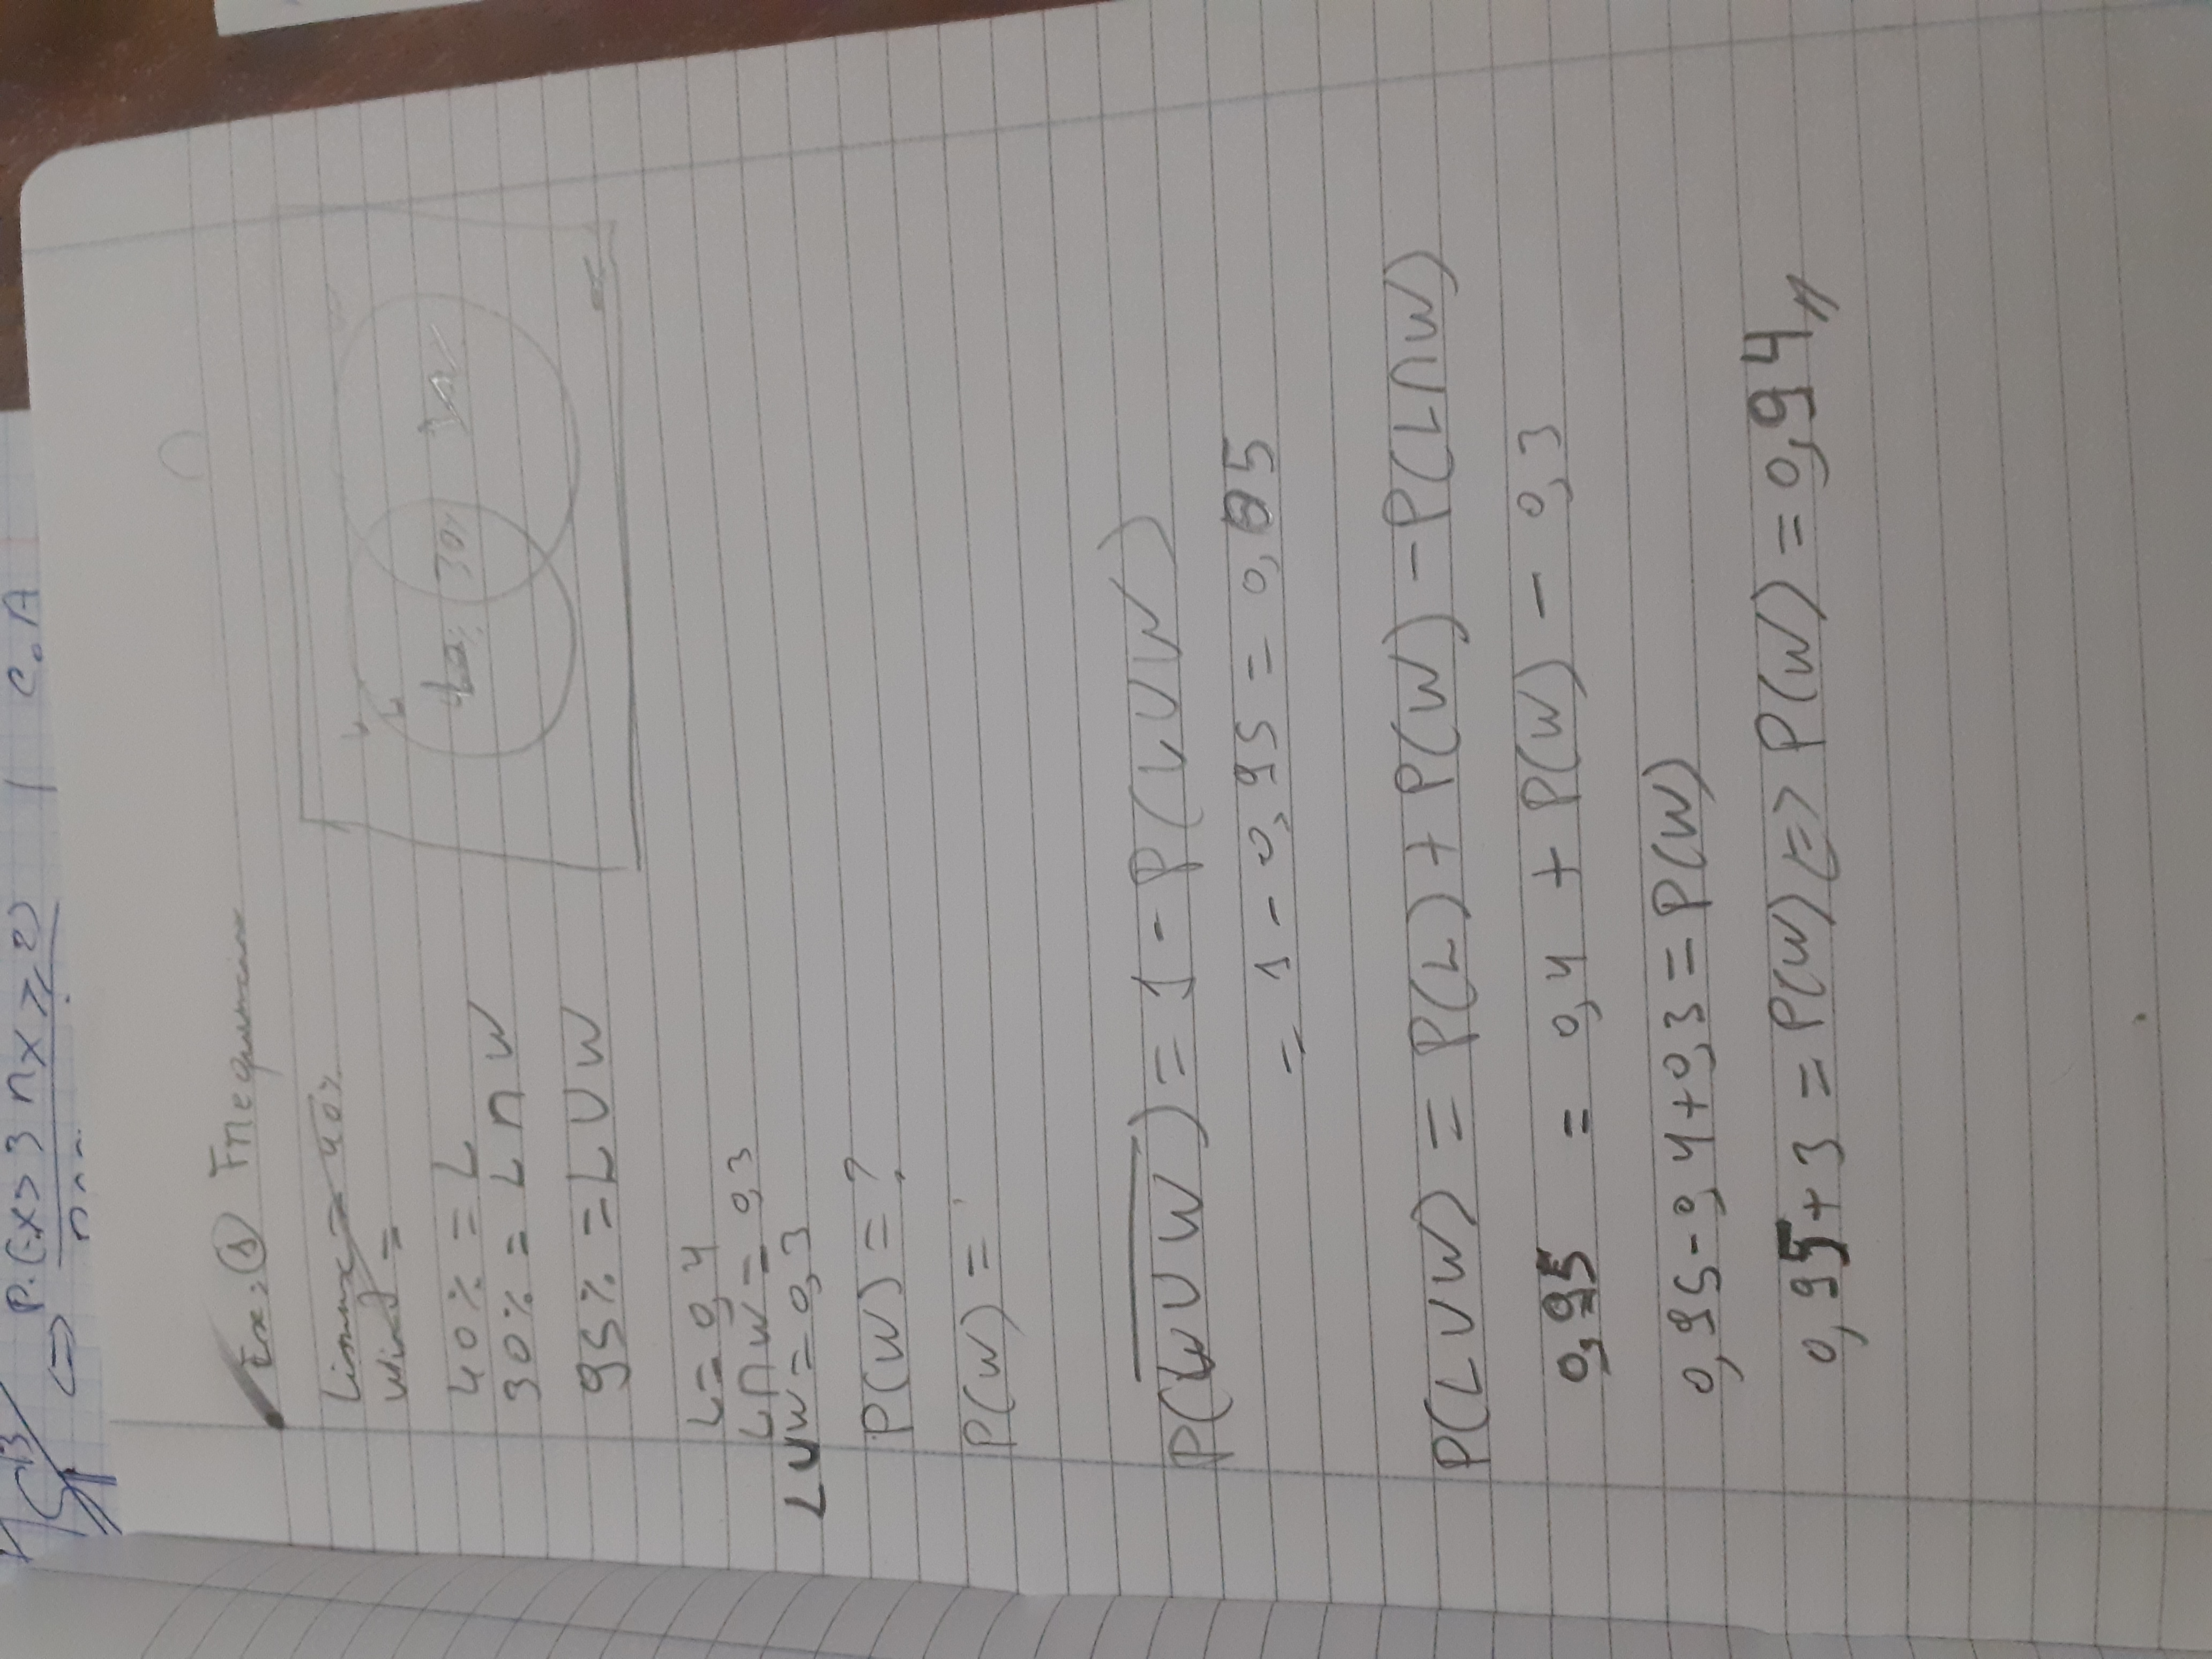 P(x>3 ∩ x≥2) | C.A
<=>
Ex: ① Frequencia
Linux = 40%
Wind =
40% = L
30% = L ∩ W
95% = L U W
L
40% 30%
L = 0,4
L∩W = 0,3
LUW = 0,3
P(W) = ?
P(W) =
P(LUW) = 1 - P(LUW)
= 1 - 0,95 = 0,05
P(LUW) = P(L) + P(W) - P(L∩W)
0,95 = 0,4 + P(W) - 0,3
0,95 - 0,4 + 0,3 = P(W)
0,95 + 3 = P(W) <=> P(W) = 0,94//